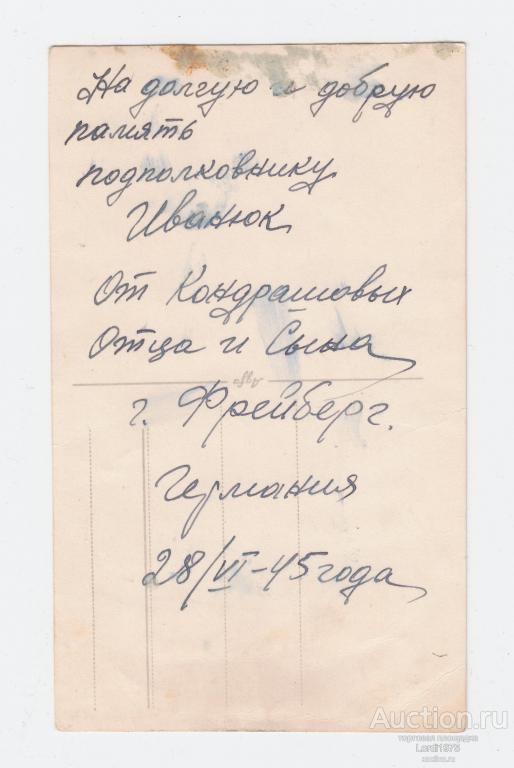 На долгую и добрую
память
подполковнику
Иванюк
От Кондрашовых
Отца и Сына
Agfa
г. Фрейберг.
Германия
28/VI-45 года
Auction.ru
торговая площадка
Lordi1975
auction.ru